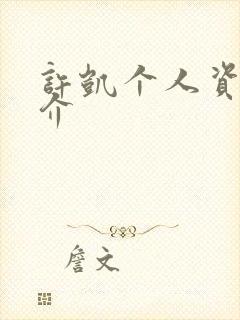 許凱个人資
介
詹文